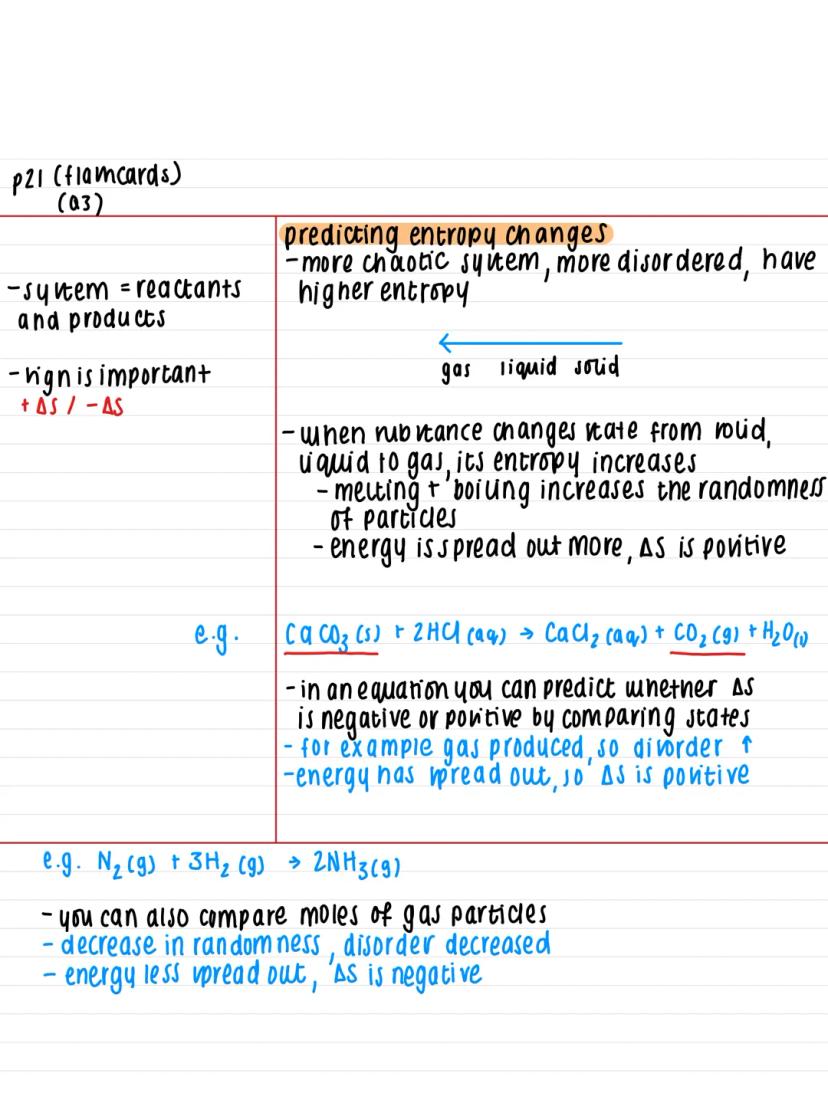 p21 (flashcards)
(a3)
predicting entropy changes
-more chaotic system, more disordered, have
higher entropy
-system = reactants
and products
-sign is important
+ ΔS / - ΔS
gas liquid solid
-when substance changes state from solid,
liquid to gas, its entropy increases
-melting + boiling increases the randomness
of particles
-energy is spread out more, ΔS is positive
e.g. CaCO₃ (s) + 2HCl (aq) → CaCl₂ (aq) + CO₂ (g) + H₂O(l)
-in an equation you can predict whether ΔS
is negative or positive by comparing states
- for example gas produced, so disorder ↑
-energy has spread out, so ΔS is positive
e.g. N₂ (g) + 3H₂ (g) → 2NH₃(g)
-you can also compare moles of gas particles
- decrease in randomness, disorder decreased
- energy less spread out, ΔS is negative